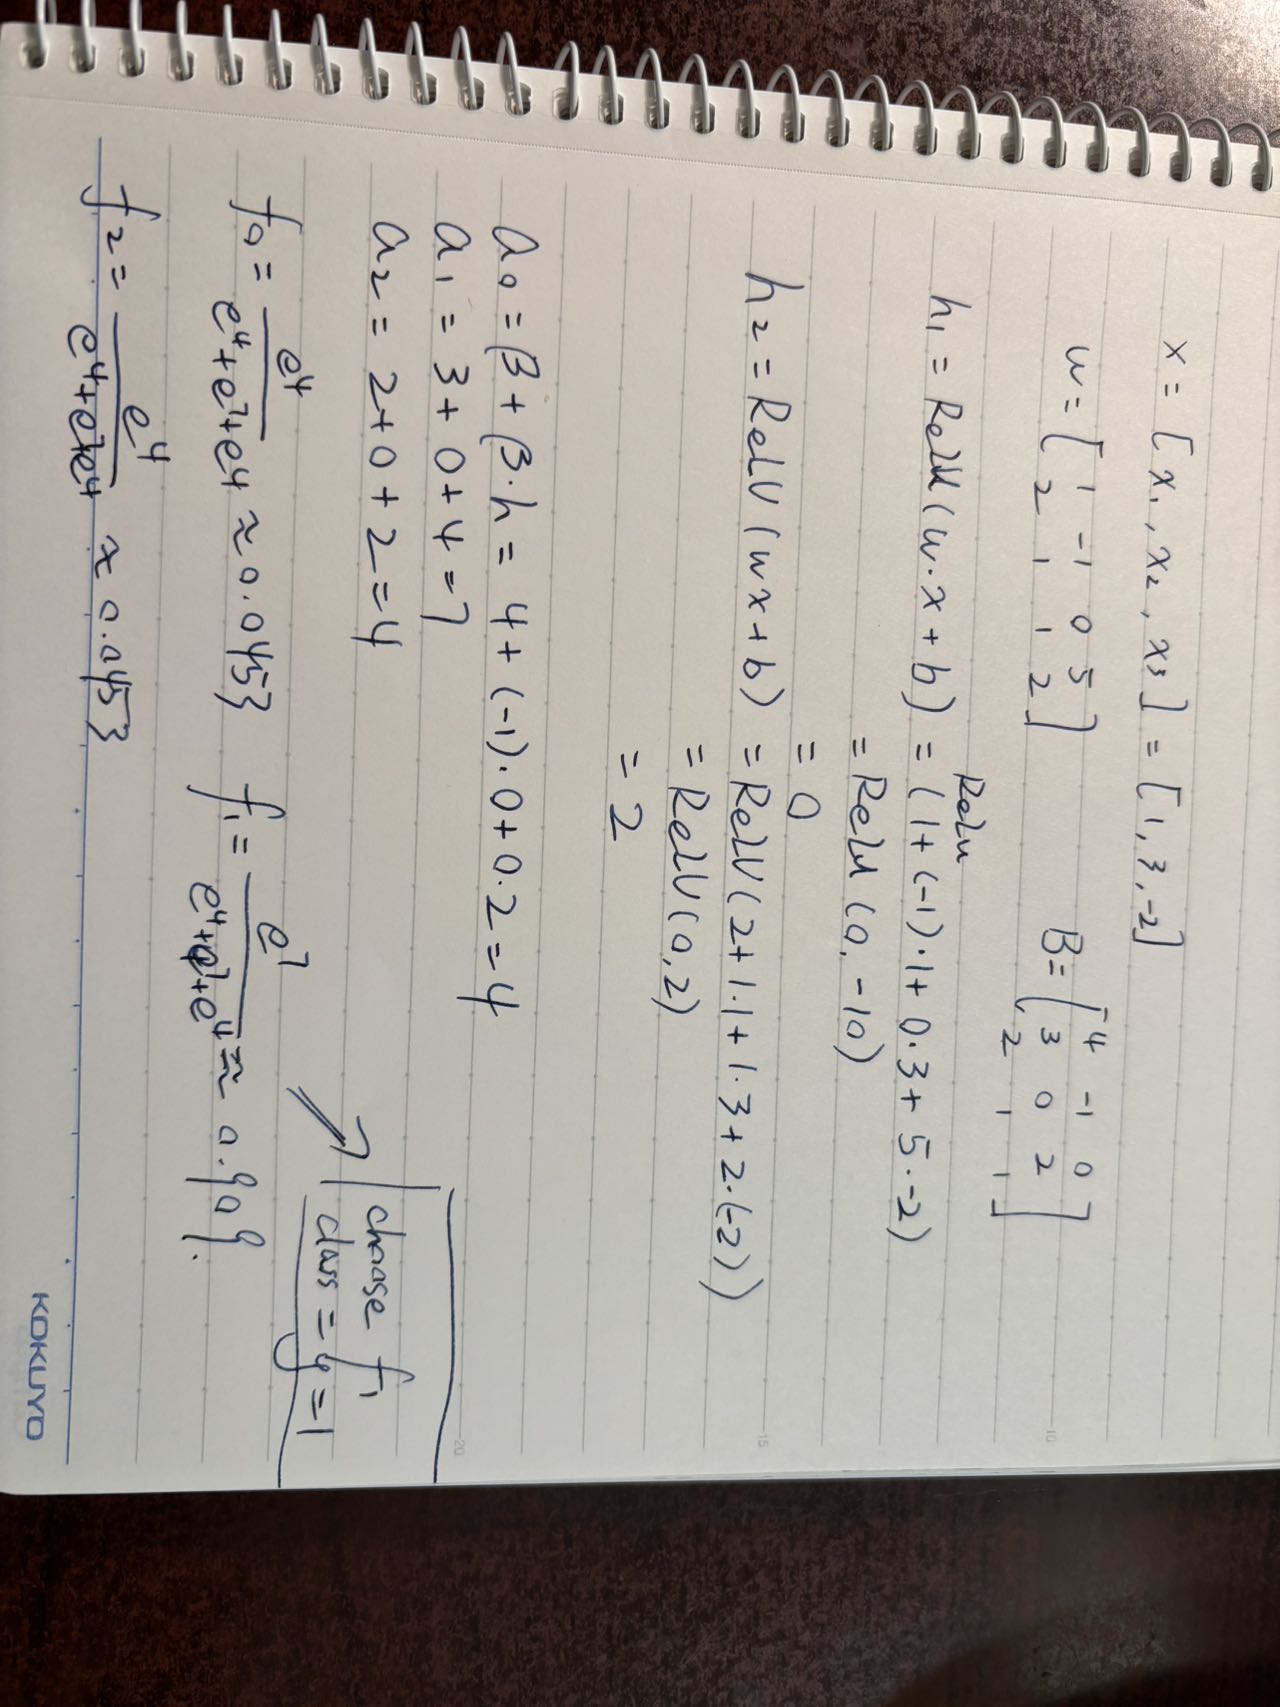 x = [ x₁ , x₂ , x₃ ] = [ 1 , 3 , -2 ]
w = [ 1 -1 0 5
2 1 1 2 ]
B = [ 4 -1 0
3 0 2
2 1 1 ]
h₁ = ReLU ( w · x + b ) = ReLu ( 1 + (-1) · 1 + 0 · 3 + 5 · -2 )
= ReLU ( 0, -10 )
= 0
h₂ = ReLU ( wx + b ) = ReLU ( 2 + 1 · 1 + 1 · 3 + 2 · (-2) )
= ReLU ( 0, 2 )
= 2
a₀ = β + β · h = 4 + (-1) · 0 + 0 · 2 = 4
a₁ = 3 + 0 + 4 = 7
a₂ = 2 + 0 + 2 = 4
choose f₁
class = y = 1
f₀ = e⁴ / (e⁴ + e⁷ + e⁴) ≈ 0.0453
f₁ = e⁷ / (e⁴ + e⁷ + e⁴) ≈ 0.909.
f₂ = e⁴ / (e⁴ + e⁷ + e⁴) ≈ 0.0453
10
15
20
KOKUYO